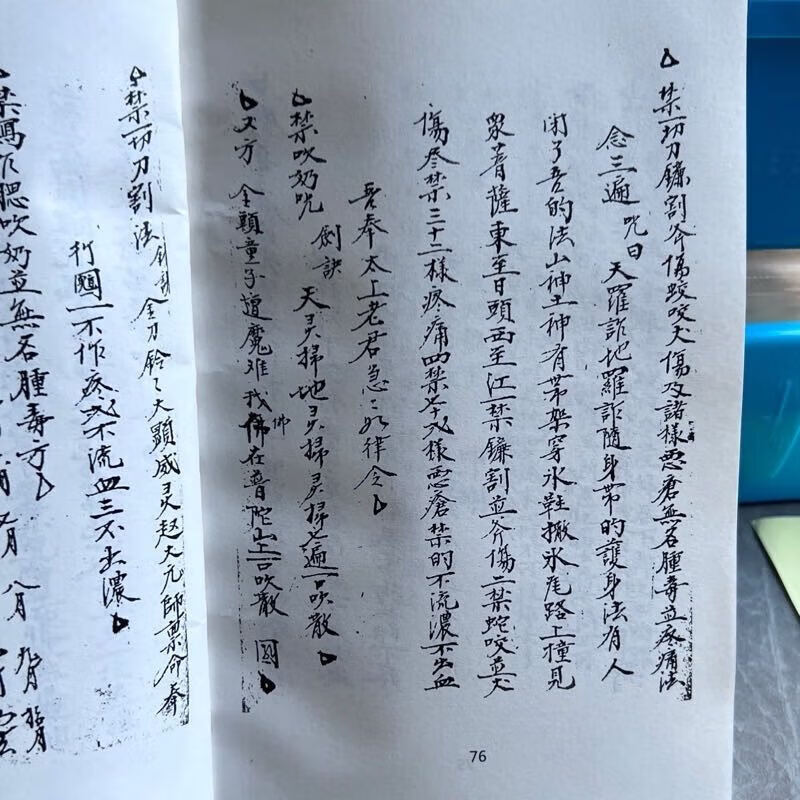 禁一切刀鐮割斧傷蛟咬犬傷及諸樣惡瘡無名腫毒並疼痛法
念三遍 咒曰 天羅詐地羅詐隨身帶的護身法有人
閉了吾的法山神土神有帶架穿氷鞋撒氷尾路上撞見
眾菩薩東至日頭西至江一禁鐮割並斧傷二禁蛇咬並犬
傷尽禁三十二樣疼痛四禁 樣惡瘡禁的不流濃不出血
吾奉太上老君急急如律令
禁吹奶咒 劍訣 天灵掃地灵掃灵掃七遍一口吹散
又方 全顯童子遭魔难我佛在普陀山上一口吹散 圓
佛
禁一切刀割法 劍訣 金刀鈴鈴大顯威灵赵大元師禀命奉
行圓 一不作疼二不流血三不出濃
吹奶並無名腫毒方
月 八月
76